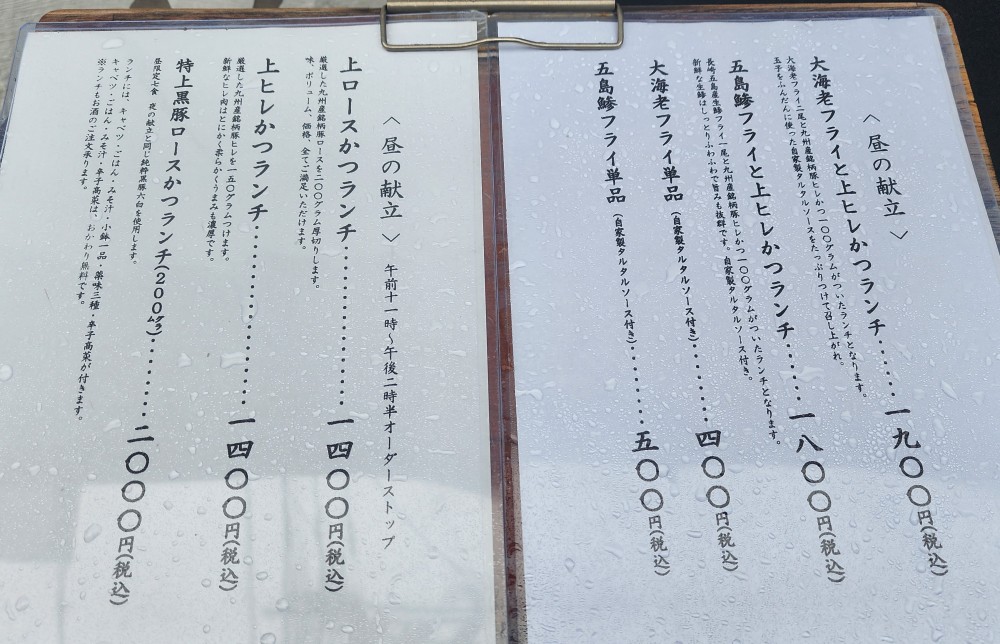 〈昼の献立〉
大海老フライと上ヒレかつランチ‥‥‥一九〇〇円(税込)
大海老フライ二尾と九州産銘柄豚ヒレかつ一〇〇グラムがついたランチとなります。
玉子をふんだんに使った自家製タルタルソースをたっぷりつけて召し上がれ。
五島鯵フライと上ヒレかつランチ‥‥‥一八〇〇円(税込)
長崎五島産生鯵フライ一尾と九州産銘柄豚ヒレかつ一〇〇グラムがついたランチとなります。
新鮮な生鯵はしっとりふわふわで旨みも抜群です。自家製タルタルソース付き。
大海老フライ単品(自家製タルタルソース付き)‥‥‥四〇〇円(税込)
五島鯵フライ単品(自家製タルタルソース付き)‥‥‥五〇〇円(税込)
〈昼の献立〉 午前十一時～午後二時半オーダーストップ
上ロースかつランチ‥‥‥‥‥‥一四〇〇円(税込)
厳選した九州産銘柄豚ロースを二〇〇グラム厚切りします。
味、ボリューム、価格、全てご満足いただけます。
上ヒレかつランチ‥‥‥‥‥‥‥一四〇〇円(税込)
厳選した九州産銘柄豚ヒレを一五〇グラムつけます。
新鮮なヒレ肉はとにかく柔らかくうまみも濃厚です。
特上黒豚ロースかつランチ(200グラム)‥‥‥二〇〇〇円(税込)
昼限定七食 夜の献立と同じ純粋黒豚六白を使用します。
ランチには、キャベツ・ごはん・みそ汁・小鉢一品・薬味三種・辛子高菜が付きます。
キャベツ・ごはん・みそ汁・辛子高菜は、おかわり無料です。
※ランチもお酒のご注文承ります。